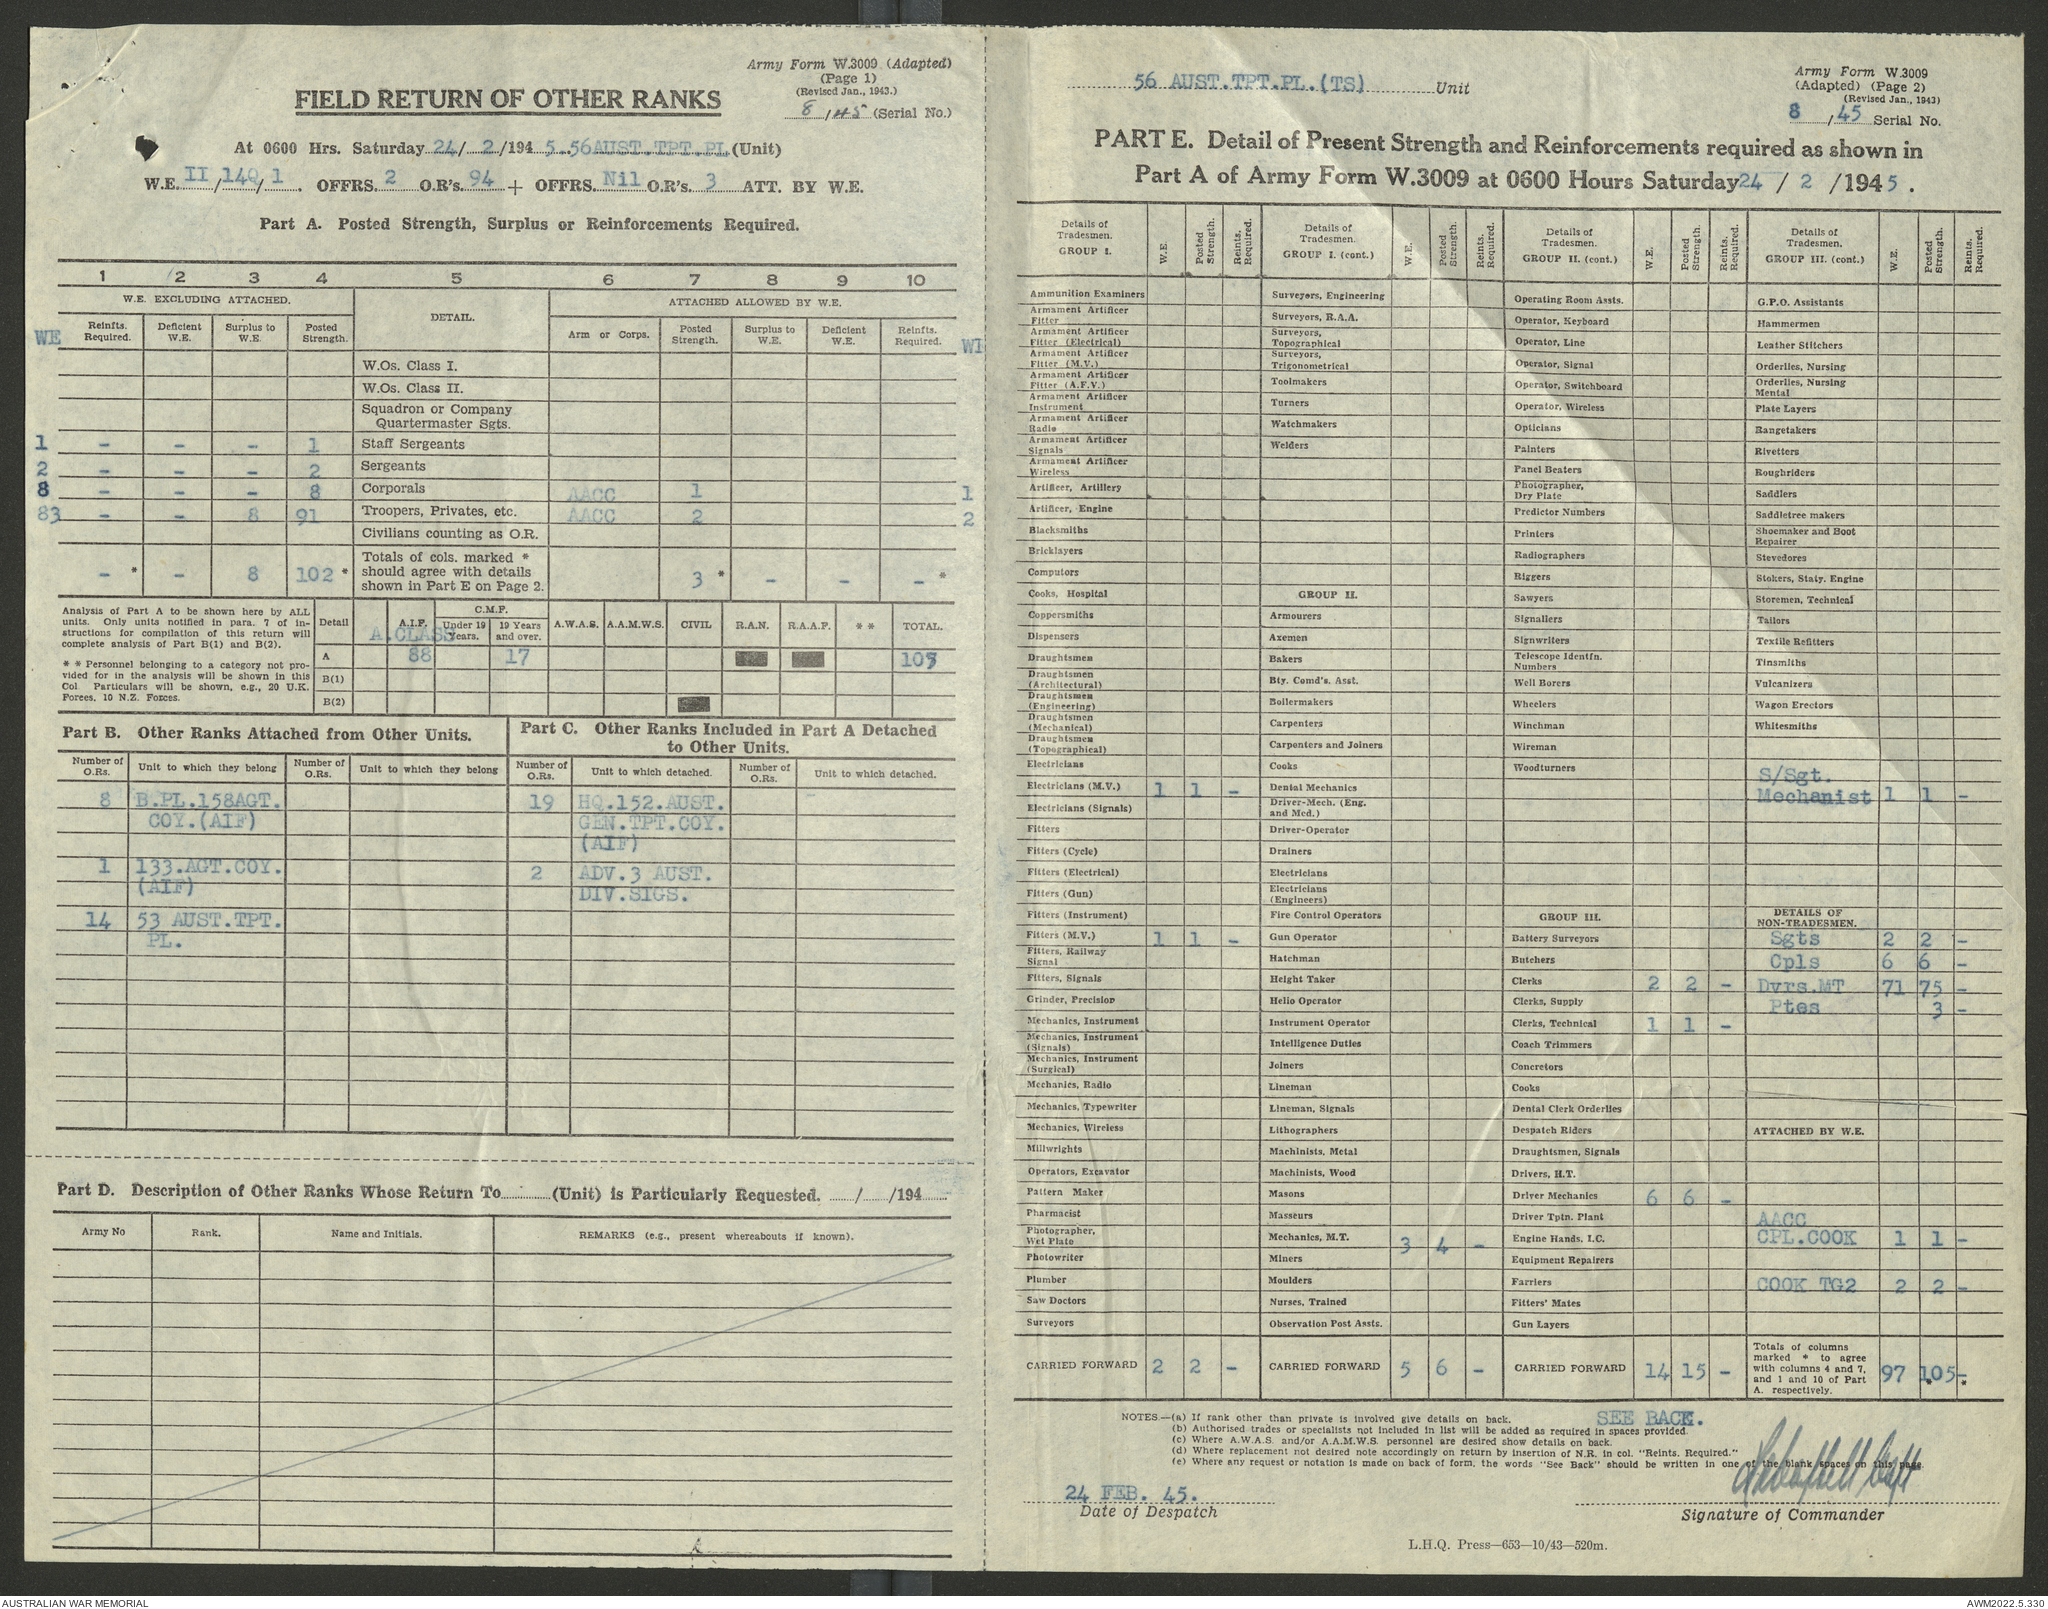 Army Form W.3009 (Adapted)
(Page 1)
(Revised Jan., 1943.)
FIELD RETURN OF OTHER RANKS
8 /45 (Serial No.)
At 0600 Hrs. Saturday 24/ 2/194 5. 56 AUST.TPT.PL (Unit)
W.E. II /140/ 1 . OFFRS. 2 O.R's. 94 + OFFRS. Nil O.R's. 3 ATT. BY W.E.
Part A. Posted Strength, Surplus or Reinforcements Required.
1 2 3 4 5 6 7 8 9 10
W.E. EXCLUDING ATTACHED. DETAIL. ATTACHED ALLOWED BY W.E.
WE Reinfts. Required. Deficient W.E. Surplus to W.E. Posted Strength. Arm or Corps. Posted Strength. Surplus to W.E. Deficient W.E. Reinfts. Required. WE
W.Os. Class I.
W.Os. Class II.
Squadron or Company
Quartermaster Sgts.
1 - - - 1 Staff Sergeants
2 - - - 2 Sergeants
8 - - - 8 Corporals AACC 1 1
83 - - 8 91 Troopers, Privates, etc. AACC 2 2
Civilians counting as O.R.
Totals of cols. marked *
should agree with details
shown in Part E on Page 2.
- * - 8 102 * 3 * - - - *
Analysis of Part A to be shown here by ALL
units. Only units notified in para. 7 of in-
structions for compilation of this return will
complete analysis of Part B(1) and B(2).
* * Personnel belonging to a category not pro-
vided for in the analysis will be shown in this
Col Particulars will be shown, e.g., 20 U.K.
Forces, 10 N.Z. Forces.
Detail A.I.F. C.M.F. Under 19 Years. 19 Years and over. A.W.A.S. A.A.M.W.S. CIVIL R.A.N. R.A.A.F. * * TOTAL.
A.CLASS
A 88 17 105
B(1)
B(2)
Part B. Other Ranks Attached from Other Units.
Number of O.Rs. Unit to which they belong Number of O.Rs. Unit to which they belong
8 B.PL.158AGT.
COY.(AIF)
1 133.AGT.COY.
(AIF)
14 53 AUST.TPT.
PL.
Part C. Other Ranks Included in Part A Detached
to Other Units.
Number of O.Rs. Unit to which detached. Number of O.Rs. Unit to which detached.
19 HQ.152.AUST.
GEN.TPT.COY.
(AIF)
2 ADV.3 AUST.
DIV.SIGS.
Part D. Description of Other Ranks Whose Return To (Unit) is Particularly Requested. / /194
Army No Rank. Name and Initials. REMARKS (e.g., present whereabouts if known).
56 AUST.TPT.PL.(TS) Unit
Army Form W.3009
(Adapted) (Page 2)
(Revised Jan., 1943)
8 /45 Serial No.
PART E. Detail of Present Strength and Reinforcements required as shown in
Part A of Army Form W.3009 at 0600 Hours Saturday 24 / 2 /194 5 .
Details of Tradesmen. GROUP I. W.E. Posted Strength. Reints. Required.
Ammunition Examiners
Armament Artificer
Fitter
Armament Artificer
Fitter (Electrical)
Armament Artificer
Fitter (M.V.)
Armament Artificer
Fitter (A.F.V.)
Armament Artificer
Instrument
Armament Artificer
Radio
Armament Artificer
Signals
Armament Artificer
Wireless
Artificer, Artillery
Artificer, Engine
Blacksmiths
Bricklayers
Computors
Cooks, Hospital
Coppersmiths
Dispensers
Draughtsmen
Draughtsmen
(Architectural)
Draughtsmen
(Engineering)
Draughtsmen
(Mechanical)
Draughtsmen
(Topographical)
Electricians
Electricians (M.V.) 1 1 -
Electricians (Signals)
Fitters
Fitters (Cycle)
Fitters (Electrical)
Fitters (Gun)
Fitters (Instrument)
Fitters (M.V.) 1 1 -
Fitters, Railway
Signal
Fitters, Signals
Grinder, Precision
Mechanics, Instrument
Mechanics, Instrument
(Signals)
Mechanics, Instrument
(Surgical)
Mechanics, Radio
Mechanics, Typewriter
Mechanics, Wireless
Millwrights
Operators, Excavator
Pattern Maker
Pharmacist
Photographer,
Wet Plate
Photowriter
Plumber
Saw Doctors
Surveyors
CARRIED FORWARD 2 2 -
Details of Tradesmen. GROUP I. (cont.) W.E. Posted Strength. Reints. Required.
Surveyors, Engineering
Surveyors, R.A.A.
Surveyors,
Topographical
Surveyors,
Trigonometrical
Toolmakers
Turners
Watchmakers
Welders
GROUP II.
Armourers
Axemen
Bakers
Bty. Comd's. Asst.
Boilermakers
Carpenters
Carpenters and Joiners
Cooks
Dental Mechanics
Driver-Mech. (Eng.
and Med.)
Driver-Operator
Drainers
Electricians
Electricians
(Engineers)
Fire Control Operators
Gun Operator
Hatchman
Height Taker
Helio Operator
Instrument Operator
Intelligence Duties
Joiners
Lineman
Lineman, Signals
Lithographers
Machinists, Metal
Machinists, Wood
Masons
Masseurs
Mechanics, M.T. 3 4 -
Miners
Moulders
Nurses, Trained
Observation Post Assts.
CARRIED FORWARD 5 6 -
Details of Tradesmen. GROUP II. (cont.) W.E. Posted Strength. Reints. Required.
Operating Room Assts.
Operator, Keyboard
Operator, Line
Operator, Signal
Operator, Switchboard
Operator, Wireless
Opticians
Painters
Panel Beaters
Photographer,
Dry Plate
Predictor Numbers
Printers
Radiographers
Riggers
Sawyers
Signallers
Signwriters
Telescope Identfn.
Numbers
Well Borers
Wheelers
Winchman
Wireman
Woodturners
GROUP III.
Battery Surveyors
Butchers
Clerks 2 2 -
Clerks, Supply
Clerks, Technical 1 1 -
Coach Trimmers
Concretors
Cooks
Dental Clerk Orderlies
Despatch Riders
Draughtsmen, Signals
Drivers, H.T.
Driver Mechanics 6 6 -
Driver Tptn. Plant
Engine Hands, I.C.
Equipment Repairers
Farriers
Fitters' Mates
Gun Layers
CARRIED FORWARD 14 15 -
Details of Tradesmen. GROUP III. (cont.) W.E. Posted Strength. Reints. Required.
G.P.O. Assistants
Hammermen
Leather Stitchers
Orderlies, Nursing
Orderlies, Nursing
Mental
Plate Layers
Rangetakers
Rivetters
Roughriders
Saddlers
Saddletree makers
Shoemaker and Boot
Repairer
Stevedores
Stokers, Staty. Engine
Storemen, Technical
Tailors
Textile Refitters
Tinsmiths
Vulcanizers
Wagon Erectors
Whitesmiths
S/Sgt.
Mechanist 1 1 -
DETAILS OF
NON-TRADESMEN.
Sgts 2 2 -
Cpls 6 6 -
Dvrs.MT 71 75 -
Ptes 3 -
ATTACHED BY W.E.
AACC
CPL.COOK 1 1 -
COOK TG2 2 2 -
Totals of columns
marked * to agree
with columns 4 and 7,
and 1 and 10 of Part
A. respectively.
97 105 - * *
NOTES.—(a) If rank other than private is involved give details on back. SEE BACK.
(b) Authorised trades or specialists not included in list will be added as required in spaces provided.
(c) Where A.W.A.S. and/or A.A.M.W.S. personnel are desired show details on back.
(d) Where replacement not desired note accordingly on return by insertion of N.R. in col. "Reints. Required."
(e) Where any request or notation is made on back of form, the words "See Back" should be written in one of the blank spaces on this page.
24 FEB. 45.
Date of Despatch
Signature of Commander
L.H.Q. Press—653—10/43—520m.
AUSTRALIAN WAR MEMORIAL
AWM2022.5.330